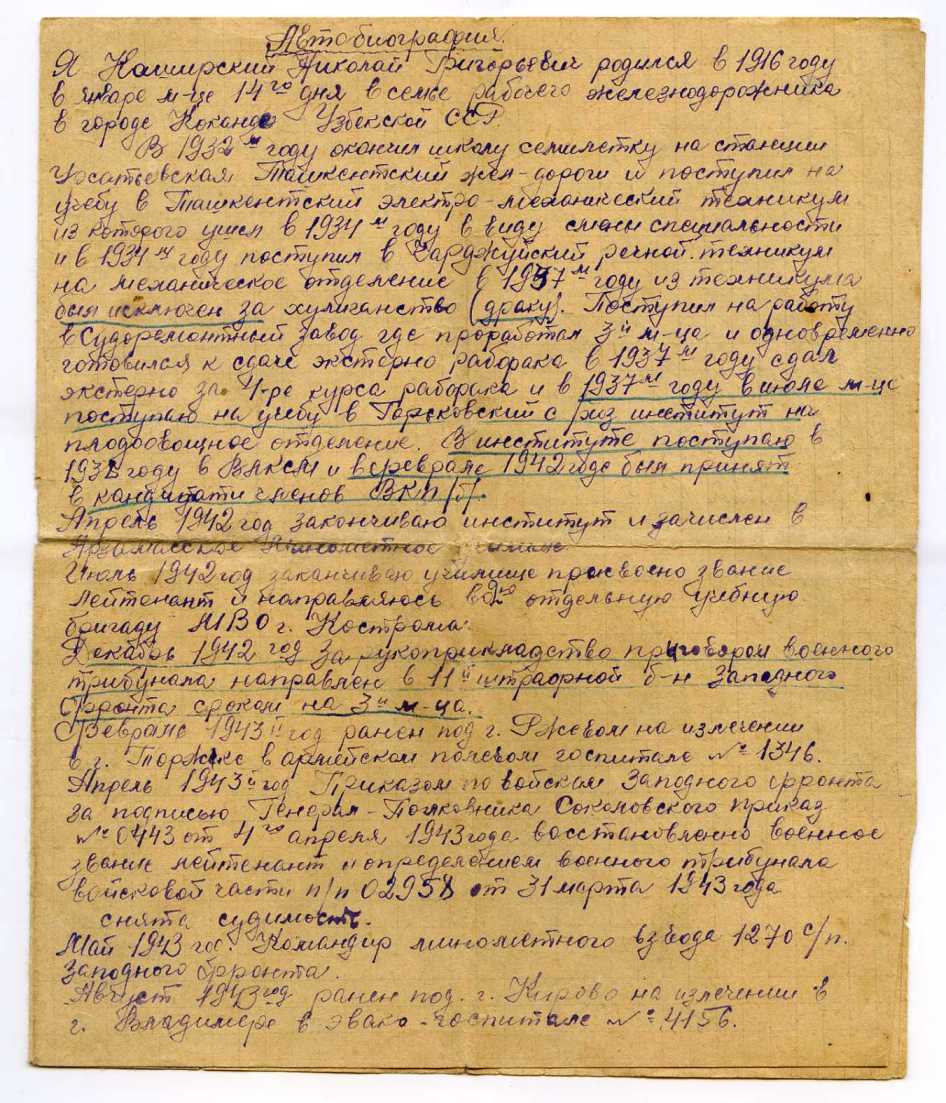 Автобиография.
Я Каширский Николай Григорьевич родился в 1916 году
в январе м-це 14го дня в семье рабочего железнодорожника
в городе Коканде Узбекской ССР.
В 1932м году окончил школу семилетку на станции
Урсатьевская Ташкентский жел-дороги и поступил на
учебу в Ташкентский электро-механический техникум
из которого ушел в 1934м году в виду смены специальности
и в 1934м году поступил в Чарджуйский речной техникум
на механическое отделение в 1937м году из техникума
был исключен за хулиганство (драку). Поступил на работу
в Судоремонтный завод где проработал 3и м-ца и одновременно
готовился к сдаче экстерно рабфака в 1937м году сдал
экстерно за 4-ре курса рабфака и в 1937м году в июле м-це
поступаю на учебу в с/хоз институт на
плодоовощное отделение. В институте поступаю в
1938 году в ВЛКСМ и в феврале 1942 года был принят
в кандидати членов ВКП/б/.
Апрель 1942 год закончиваю институт и зачислен в
Арзамасское Минометное училище
Июль 1942 год заканчиваю училище присвоено звание
лейтенант и направляюсь в отдельную учебную
бригаду МВО г. Кострома.
Декабрь 1942 год за рукоприкладство приговором военного
трибунала направлен в 11й штрафной б-н Западного
фронта сроком на 3и м-ца.
Февраль 1943й год ранен под г. Ржевом на излечении
в г. Торжке в армейском полевом госпитале № 1346.
Апрель 1943й год Приказом по войскам Западного фронта
за подписью Генерал-Полковника Соколовского приказ
№ 0443 от 4го апреля 1943 года восстановлено военное
звание лейтенант и определением военного трибунала
войсковой части п/п 02958 от 31 марта 1943 года
снята судимость.
Май 1943 год. Командир минометного взвода 1270 с/п.
Западного фронта.
Август 1943 год ранен под. г. Кирово на излечении в
г. Владимере в эвако-госпитале № 4156.